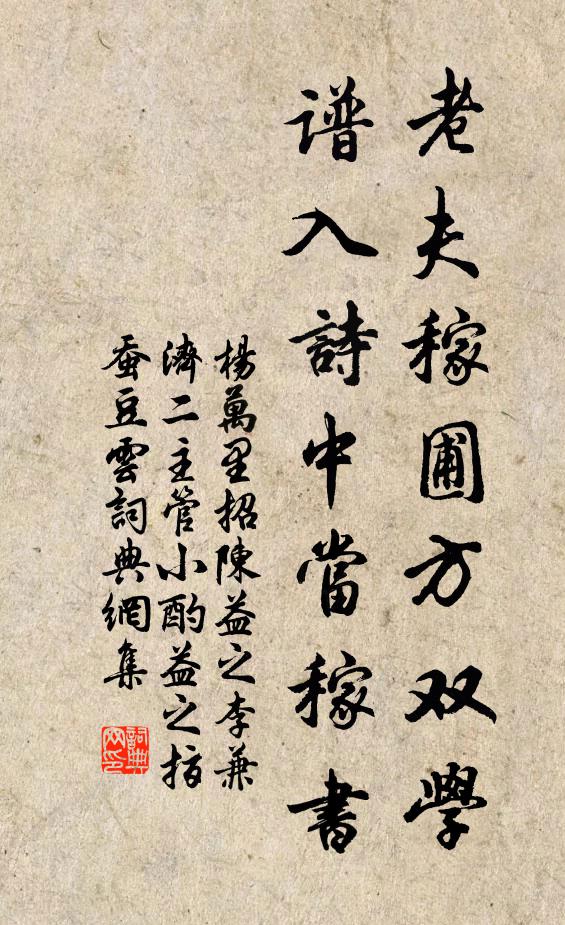 老夫稼圃方双學
譜入詩中當稼書
楊萬里招陳益之李兼
濟二主管小酌益之指
蚕豆雲詞典網集
詞典
网印